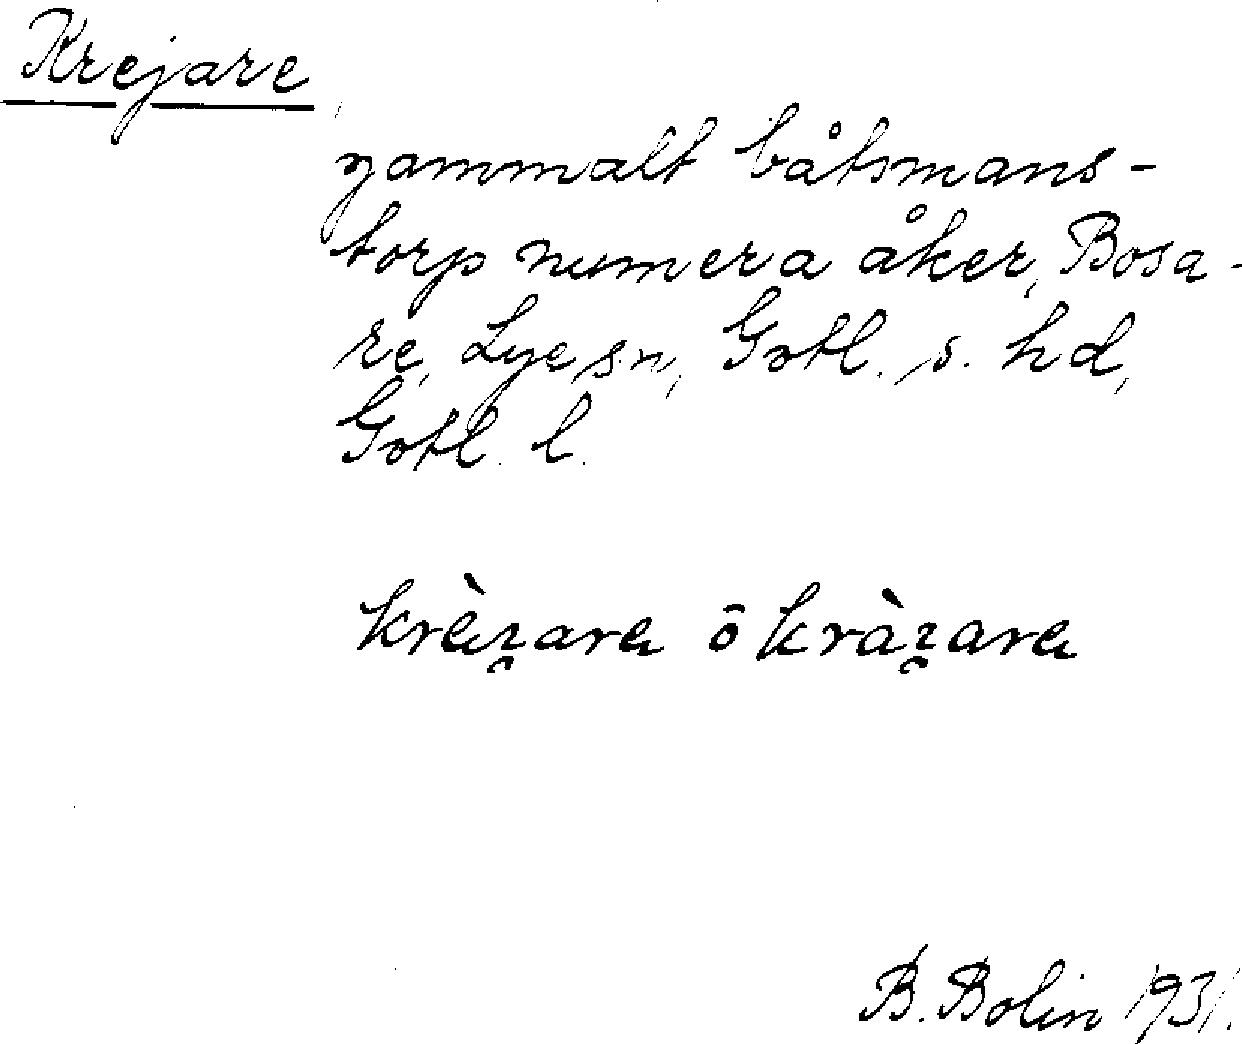 Krejare,
gammalt båtsmans-
torp numera åker, Bosa-
re, Lye sn, Gotl. s. hd,
Gotl. l.
ō
B. Bolin 1931.